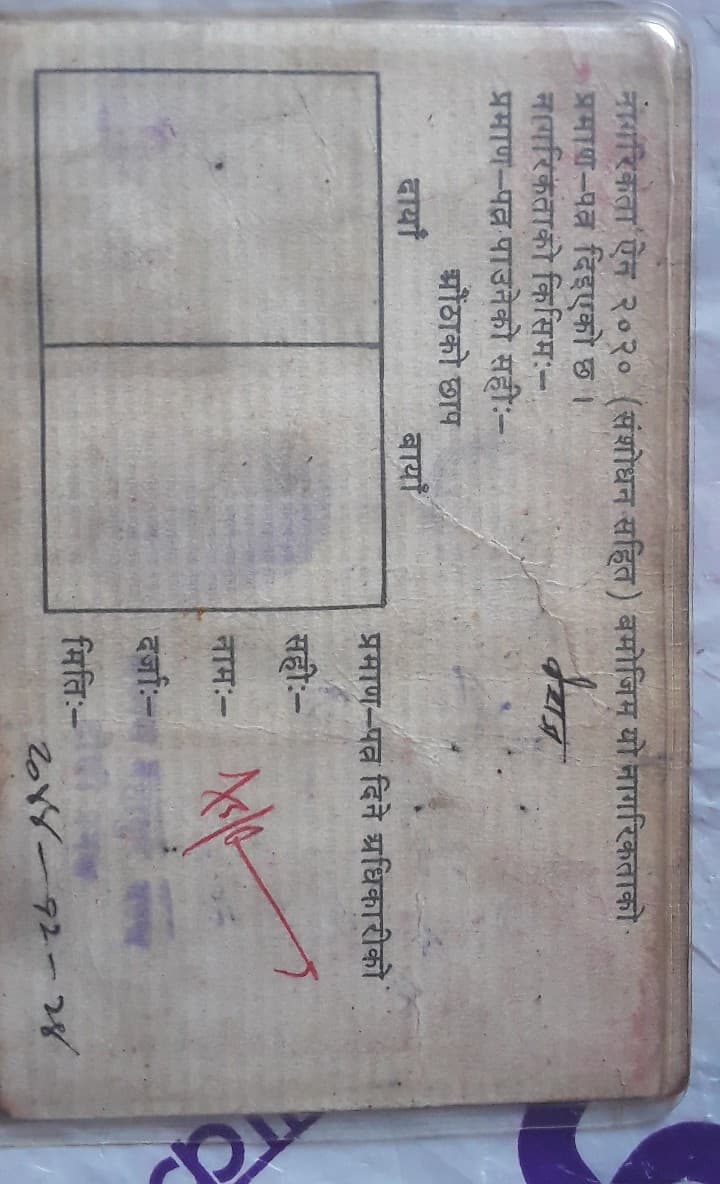 नागरिकता ऐन २०२० (संशोधन सहित) बमोजिम यो नागरिकताको
प्रमाण-पत्र दिइएको छ ।
नागरिकताको किसिम:- वंशज
प्रमाण-पत्र पाउनेको सही:-
औंठाको छाप
दायाँ बायाँ
प्रमाण-पत्र दिने अधिकारीको
सही:-
नाम:-
दर्जा:-
मिति:- २०४४-१२-२४